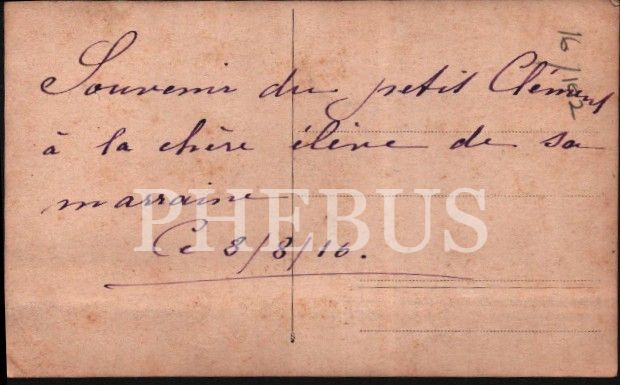 Souvenir du petit Clément
à la chère élève de sa
marraine
Ce 8/8/16.
16/102
PHEBUS